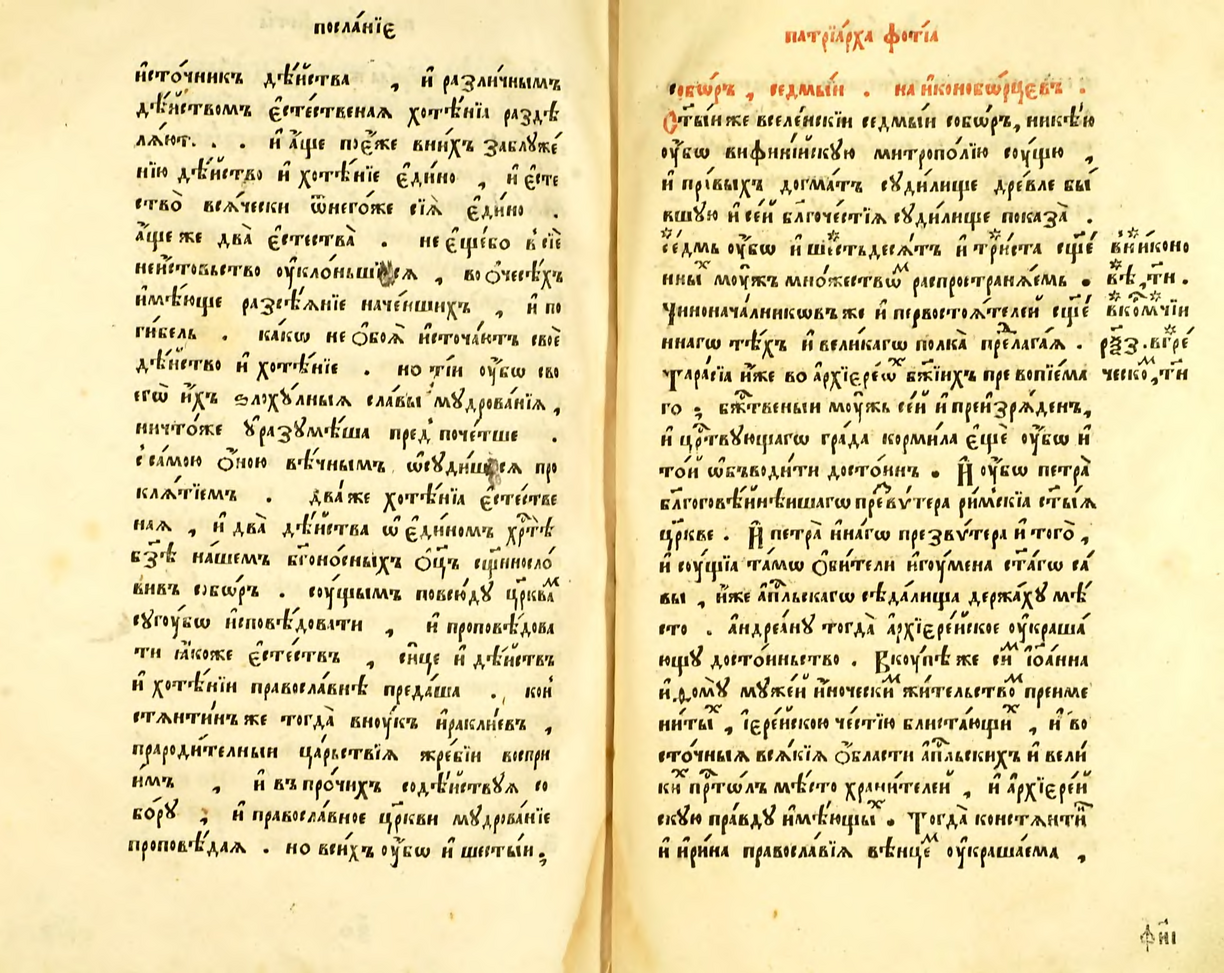 посла́нїе
и҆сто́чникъ дѣ́йства , и҆ разли́чнымъ
дѣ́йствомъ є҆сте́ственаѧ хотѣ́нїѧ раздѣ
лѧ́ют. . . и҆ а҆́ще по є҆́же вни́хъ заблуже́
нїю дѣ́йство и҆ хотѣ́нїе є҆ди́но , и҆ є҆сте
ство̀ всѧ́чески ѿнего́же сїѧ̀ є҆ди́но .
а҆́ще же два̀ є҆стества̀ . не є҆ще́бо в сїѐ
неи́стовьство ᲂу҆кло́ньшїисѧ , во ѻ҆чесѣ́хъ
и҆мѣ́юще разсѣ́ѧнїе наче́ншихъ , и҆ по
ги́бель . ка́кѡ не ѻ҆боѧ̀ и҆сточа́итъ своѐ
дѣ́йство и҆ хотѣ́нїе . но ті́и ᲂу҆́бѡ сво
егѡ̀ и҆́хъ ѕлоху́лныѧ сла́вы мꙋдрова́нїѧ ,
ничто́же ᲂу҆разꙋмѣ́ша пред̾ поче́тше .
с самою ѻ҆́ною вѣ́чнымъ ѡ҆сꙋди́шесѧ про
клѧ́тїемъ . два́же хотѣ́нїѧ є҆сте́стве
наѧ , и҆ два̀ дѣ́йства ѡ҆ є҆ди́номъ хрⷭ҇тѣ
бз҃ѣ на́шемъ бг҃оно́сныхъ ѻ҆ц҃ъ сщ҃нносло́
вивъ собѡ́ръ . сᲂу́щымъ повсю́дꙋ цр҃квамⷨ
сꙋгᲂу́бѡ и҆сповѣ́довати , и҆ проповѣ́дова
ти ꙗ҆́коже є҆сте́ствъ , си́це и҆ дѣ́йствъ
и҆ хотѣ́нїи правосла́внѣ преда́ша . кон
стѧнти́нъ же тогда̀ внᲂу́къ и҆ракли́евъ ,
прароди́телныи ца́рьствїѧ жре́бїи воспри
и҆́мъ , и҆ въ про́чихъ содѣ́йствꙋѧ со
бо́рꙋ ; и҆ правосла́вное цр҃кви мꙋдрова́нїе
проповѣ́даѧ . но всѝхъ ᲂу҆́бѡ и҆ шесты́и ;
патрїа́рха фо́тїа
собѡ́ръ , седмы́и . на и҆конобѡ́рцевъ .
Ст҃ы́и же вселе́нскїи седмы́и собѡ́ръ, нике́ю
ᲂу҆́бѡ вифини́искꙋю митропо́лїю сᲂу́щю ,
и҆ пре́выхъ догма́тъ сꙋди́лище дре́вле бы́
вшꙋю и҆ сеи́ бл҃гоче́стїѧ сꙋди́лище показа̀ .
се́дмь ᲂу҆́бѡ и҆ ше́стьдесѧ́тъ и҆ три́ста сщ҃е́
нныⷯ мᲂу́жъ мно́жествѡⷨ распространѧ́емь .
Чинонача́лникѡвъ же и҆ первостоѧ́телеи сщ҃е́
ннагѡ тѣ́хъ и҆ вели́кагѡ полка̀ пре́лагаѧ .
Тара́сїа и҆́же во а҆рхїере́ѡⷯ бж҃їихъ превопїе́ма
го ; бжⷭ҇твеныи мᲂу́жь се́и и҆ преи́зрѧденъ,
и҆ црⷭ҇твꙋющагѡ гра́да корми́ла є҆щѐ ᲂу҆́бѡ и҆
то́и ѡ҆бъводи́ти досто́инъ . И҆ ᲂу҆́бѡ петра̀
бл҃гоговѣ́инѣишагѡ презвѵ́тера ри́мскїѧ ст҃ы́ѧ
цр҃кве . И҆ петра̀ и҆на́гѡ презвѵ́тера и҆ того̀ ,
и҆ сᲂу́щїѧ та́мѡ ѻ҆би́тели и҆гᲂу́мена ст҃а́гѡ са́
вы , и҆́же а҆пⷭ҇льскагѡ сѣда́лища держа́хꙋ мѣ́
сто . а҆ндреа́нꙋ тогда̀ а҆рхїере́йское ᲂу҆краша́
ющꙋ досто́иньство . Вкꙋ́пѣ же си́ⷨ і҆ѡа́нна
и҆ ѳомꙋ̀ мꙋже́и и҆́ноческиⷨ жи́тельствоⷨ преиме
ни́тыⷯ , і҆ере́йскою че́стїю блиста́ющиⷯ , и҆ во
сто́чныѧ всѧ́кїѧ ѻ҆́бласти а҆пⷭ҇льскихъ и҆ вели́
киⷯ прⷭ҇тѡ́лъ мѣ́сто храни́телеи , и҆ а҆рхїере́й
скꙋю пра́вдꙋ и҆мѣ́ющыⷯ . Тогда̀ констѧнти́ⷩ
и҆ и҆ри́на правосла́вїѧ вѣнце́ⷨ ᲂу҆краша́ема ,
вни́коно
вѣ, тн .
вко́мчїи
рѯз. вгре́
ческоⷨ, тн
фн҃і